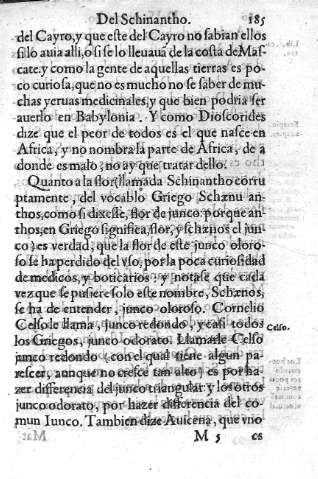 Del Schinantho. 185
del Cayro, y que este del Cayro no sabian ellos
si lo auia alli, o si se lo lleuauā de la costa de Mas
cate, y como la gente de aquellas tierras es po-
co curiosa, que no es mucho no se saber de mu-
chas yeruas medicinales, y que bien podria ser
auerlo en Babylonia. Y como Dioscorides
dize que el peor de todos es el que nasce en
Africa, y no nombra la parte de Africa, de a
donde es malo, no ay que tratar dello.
Quanto a la flor, llamada Schinantho corru
ptamente, del vocablo Griego Schænu an
thos, como si dixesse, flor de junco, porque an
thos, en Griego significa, flor, y schænos el jun
co: es verdad, que la flor de este junco oloro-
so se ha perdido del vso, por la poca curiosidad
de medicos, y boticarios: y notase que cada
vez que se pusiere solo este nombre, Schænos,
se ha de entender, junco oloroso. Cornelio
Celso le llama, junco redondo, y casi todos
Celso.
los Griegos, junco odorato. Llamarle Celso
junco redondo (con el qual tiene algun pa-
rescer, aunque no cresce tan alto) es por ha-
zer differencia del junco triangular y los otros
junco odorato, por hazer differencia del co-
mun Iunco. Tambien dize Auicena, que vno
M 5 es